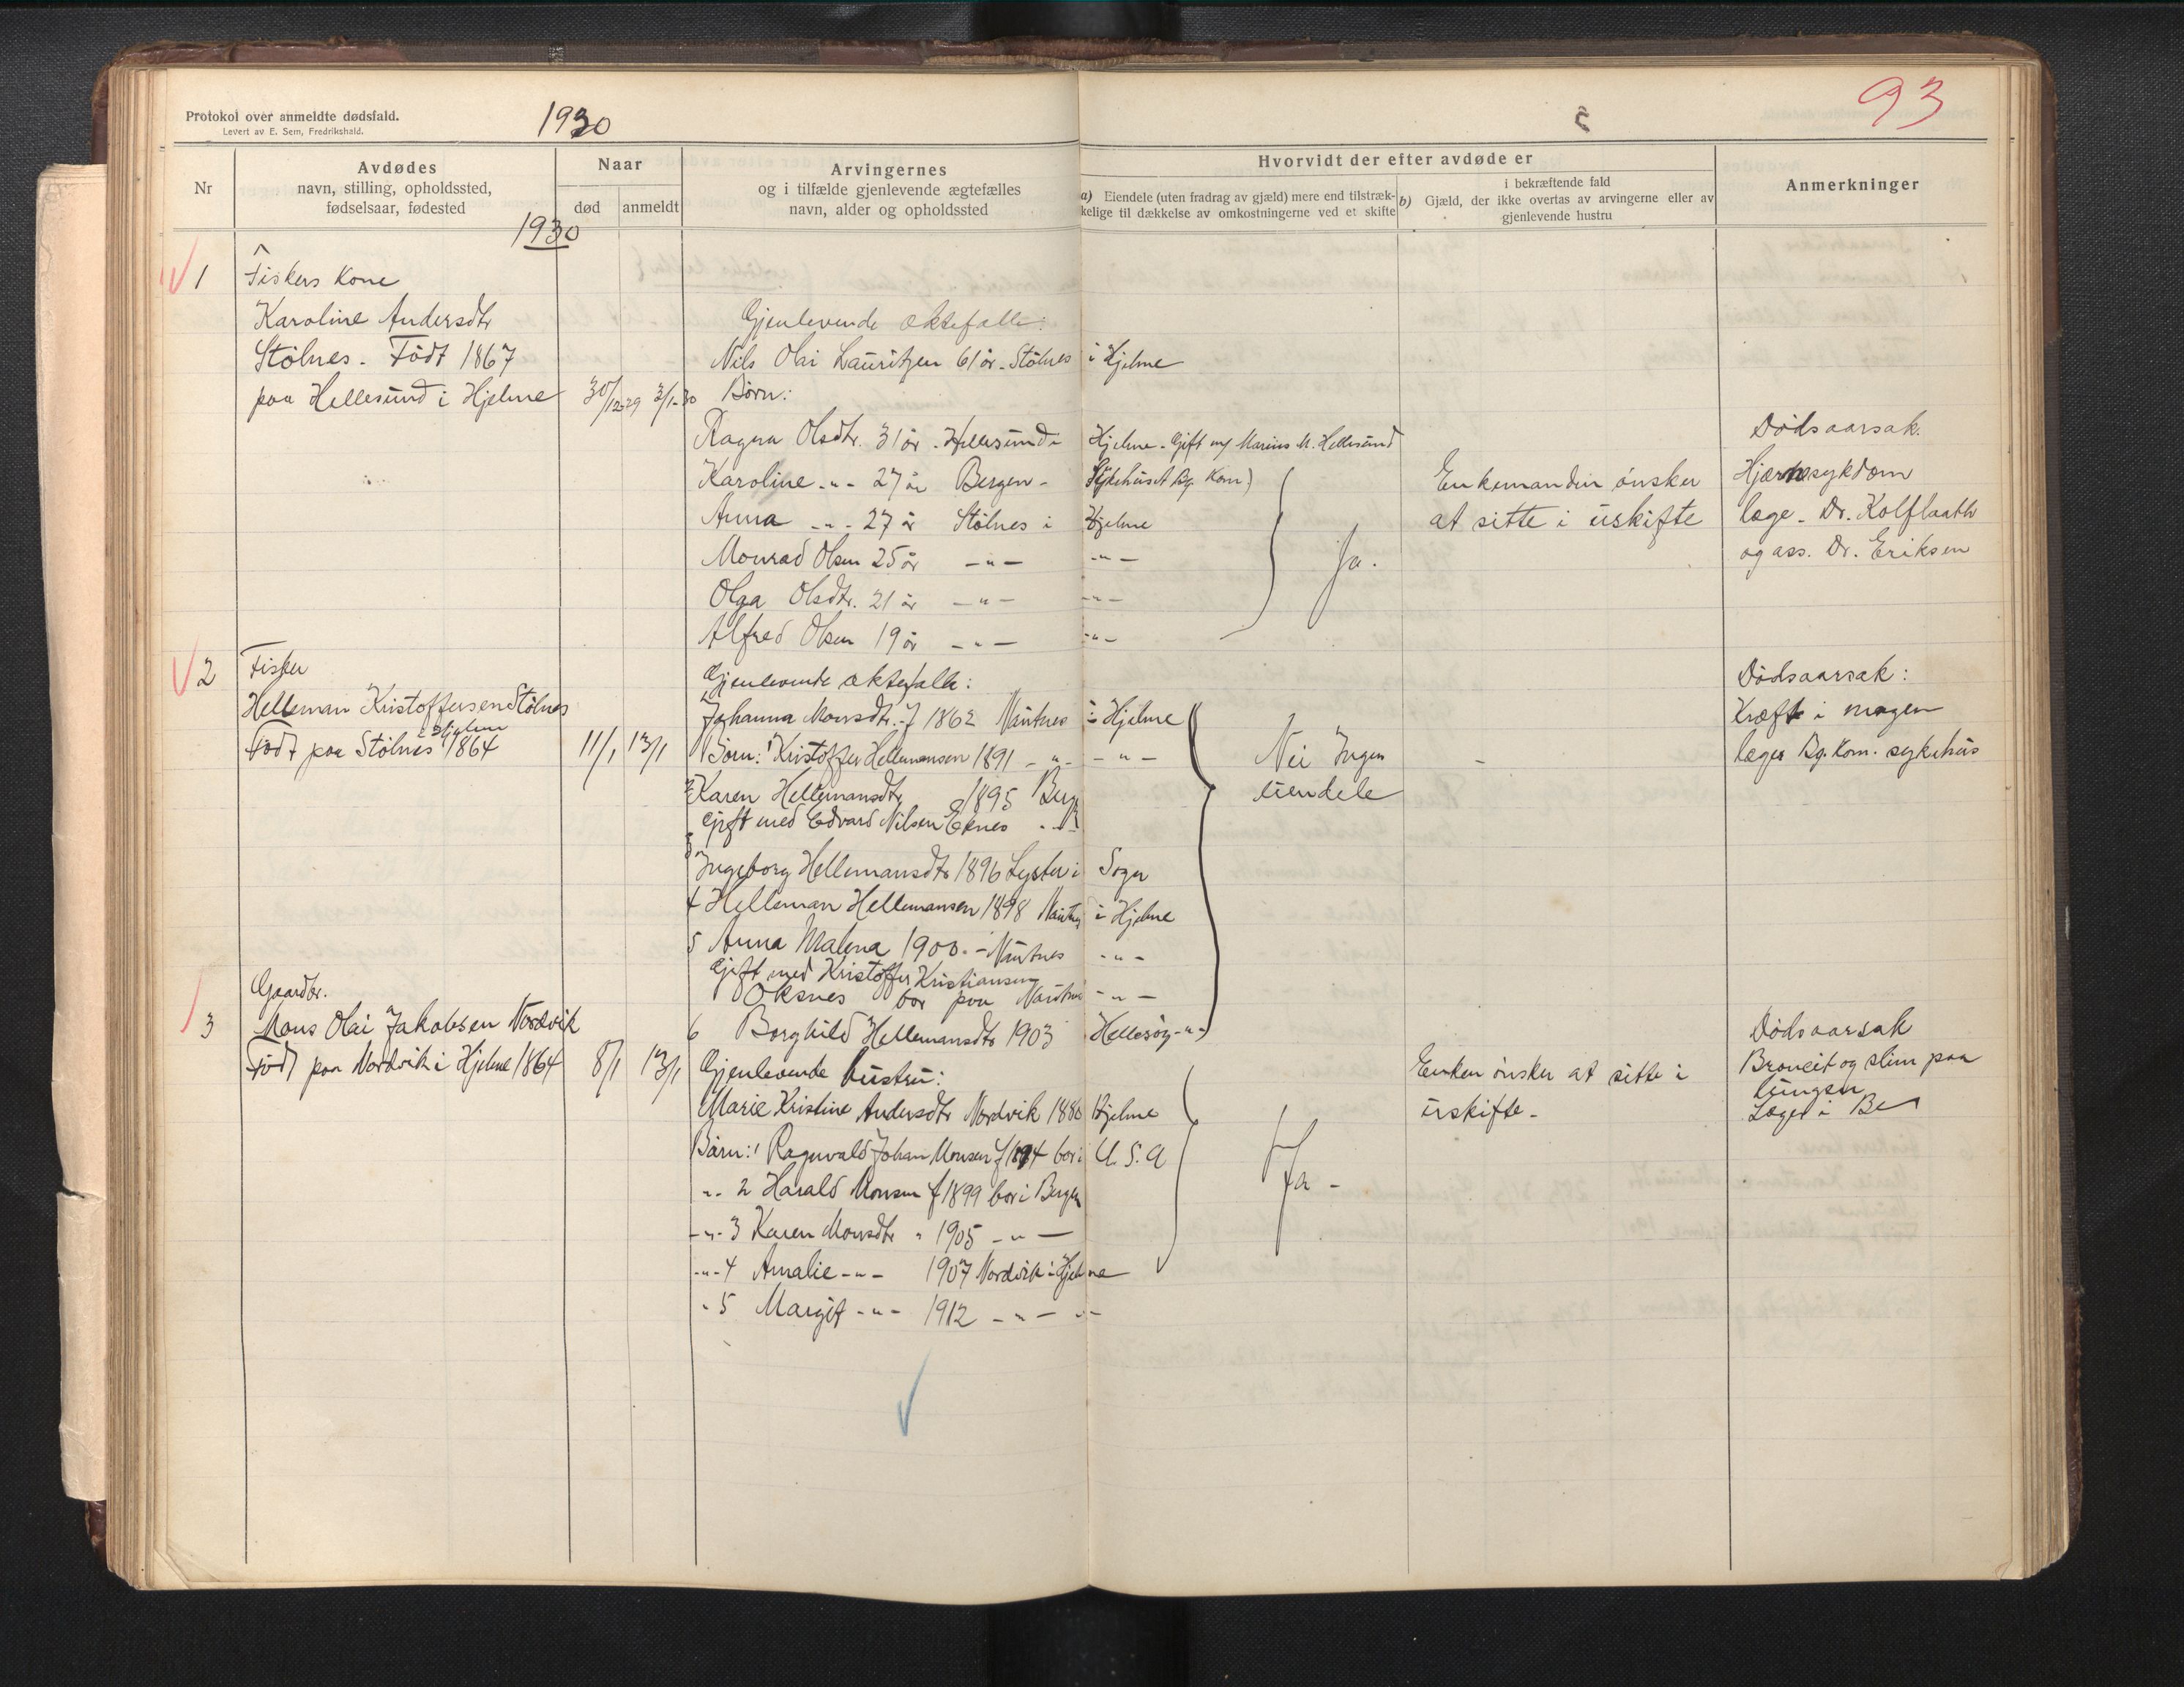 Protokol over anmeldte dødsfald.
Levert av E. Sem, Fredrikshald.
1930
93
Nr
Avdødes
navn, stilling, opholdssted,
fødselsaar, fødested
Naar
død
anmeldt
Arvingernes
og i tilfælde gjenlevende ægtefælles
navn, alder og opholdssted
Hvorvidt der efter avdøde er
a) Eiendele (uten fradrag av gjæld) mere end tilstræk-
kelige til dækkelse av omkostningerne ved et skifte
i bekræftende fald
b) Gjæld, der ikke overtas av arvingerne eller av
gjenlevende hustru
Anmerkninger
1930
1
Fiskers kone
Karoline Andersdtr
Stölnes. Födt 1867
paa Hellesund i Hjelme
30/12-29
3/1-30
Gjenlevende ektefælle:
Nils Olai Lauritzen 61 år. Stölnes i Hjelme
Børn:
Ragna Olsdtr. 31 år. Hellesund i Hjelme. Gift m/ Marius M. Hellesund
Karoline -"- 27 år Bergen - Sykehuset Bg. Kom)
Anna -"- 27 år Stölnes i Hjelme
Monrad Olsen 25 år -"- -"-
Olga Olsdtr. 21 år -"- -"-
Alfred Olsen 19 år -"- -"-
Ja.
Enkemanden önsker
at sitte i uskifte
Dødsaarsak.
Hjærnesykdom
læge. Dr. Kolflaath
og ass. Dr. Eriksen
2
Fisker
Helleman Kristoffersen Stölnes
i Hjelme
Födt paa Stölnes 1864
11/1
13/1
Gjenlevende ektefælle:
Johanna Monsdtr. f 1862 Nautnes i Hjelme
Børn: 1 Kristoffer Hellemansen 1891 -"- -"-
2 Karen Hellemansdtr 1895 Berg
Gift med Edvard Nilsen Eknes -"-
3 Ingeborg Hellemansdtr 1896 Lyster i Sogn
4 Helleman Hellemansen 1898 Nautnes i Hjelme
5 Anna Malena 1900. - Nautnes -"-
Gift med Kristoffer Kristiansen
Oksnes bor paa Nautnes -"-
6 Borghild Hellemansdtr 1903 Hellesøy -"-
Nei Ingen
eiendele
-
Dödsaarsak:
Kræft i magen
læger Bg. Kom. sykehus
3
Gaardbr.
Mons Olai Jakobsen Nordvik
Född paa Nordvik i Hjelme 1864
8/1
13/1
Gjenlevende hustru:
Marie Kristine Andersdtr Nordvik 1880 Hjelme
Børn: 1 Ragnvald Johan Monsen f 1894 bor i U.S.A
-"- 2 Harald Monsen f 1899 bor i Bergen
-"- 3 Karen Monsdtr " 1905 -"-
-"- 4 Amalie -"- 1907 Nordvik i Hjelme
" 5 Margit -"- 1912 -"- -"-
Ja -
Enken önsker at sitte i
uskifte.
Dödsaarsak
Broncit og slim paa
lungen
Læger i Be